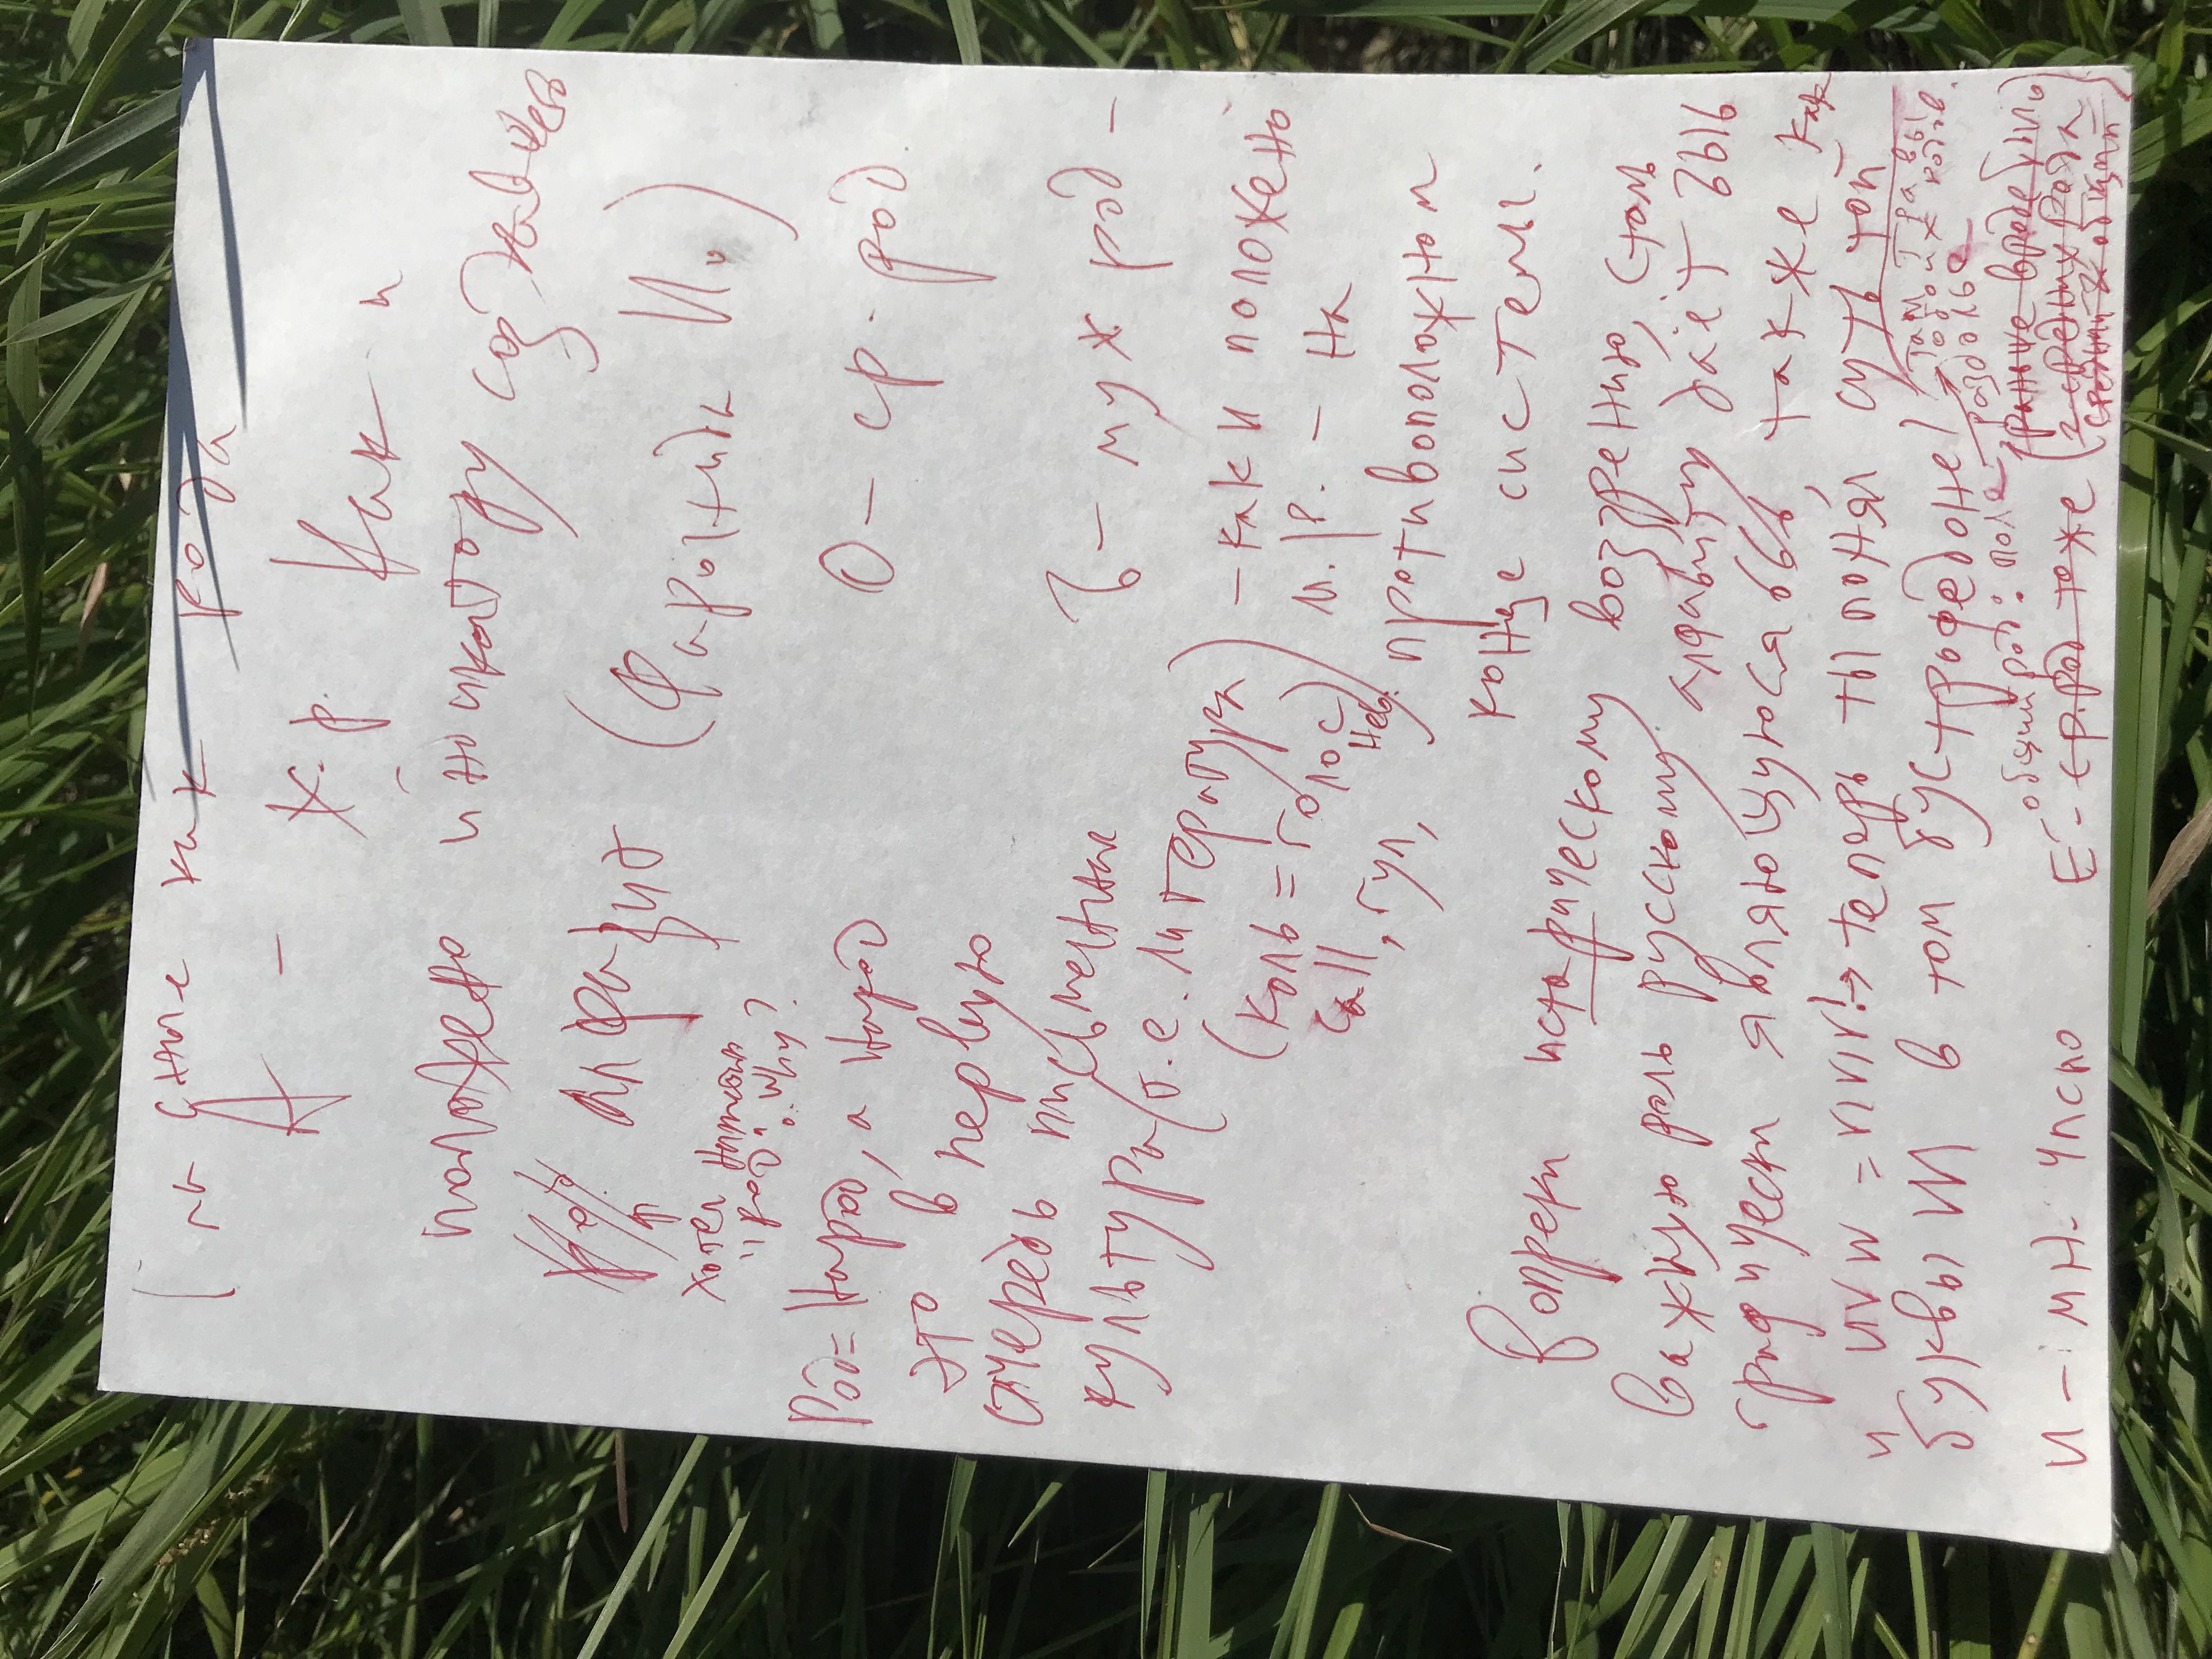 Гласные как рода
А – ж.р. Как и
положено индикатору создавшего
алфавит (Фарознида И.)
хотел написать
"род". Why?
Род = Народ, а народ
это в первую
очередь письменная
культура (т.е. литература)
(коль = голос)
call, гул, неб.
О – ср. род.
Ъ – муж род –
– как и положено
м.р. – на
противоположном
конце системы.
Вопреки истарическому воззрению, столь
важную роль русскому алфавиту даёт ЪЫЬ
графически являющуюся ььь, также как
и UVW = VIVIV! → теперь ты понял суть той
буквы Ш в том бустрофедоне!
там травы
обоих родов.
раздолье
общий род: поле,
И – мн. число
Е – ср. род тоже (раньше вроде было
2 средних рода
средний и общий)